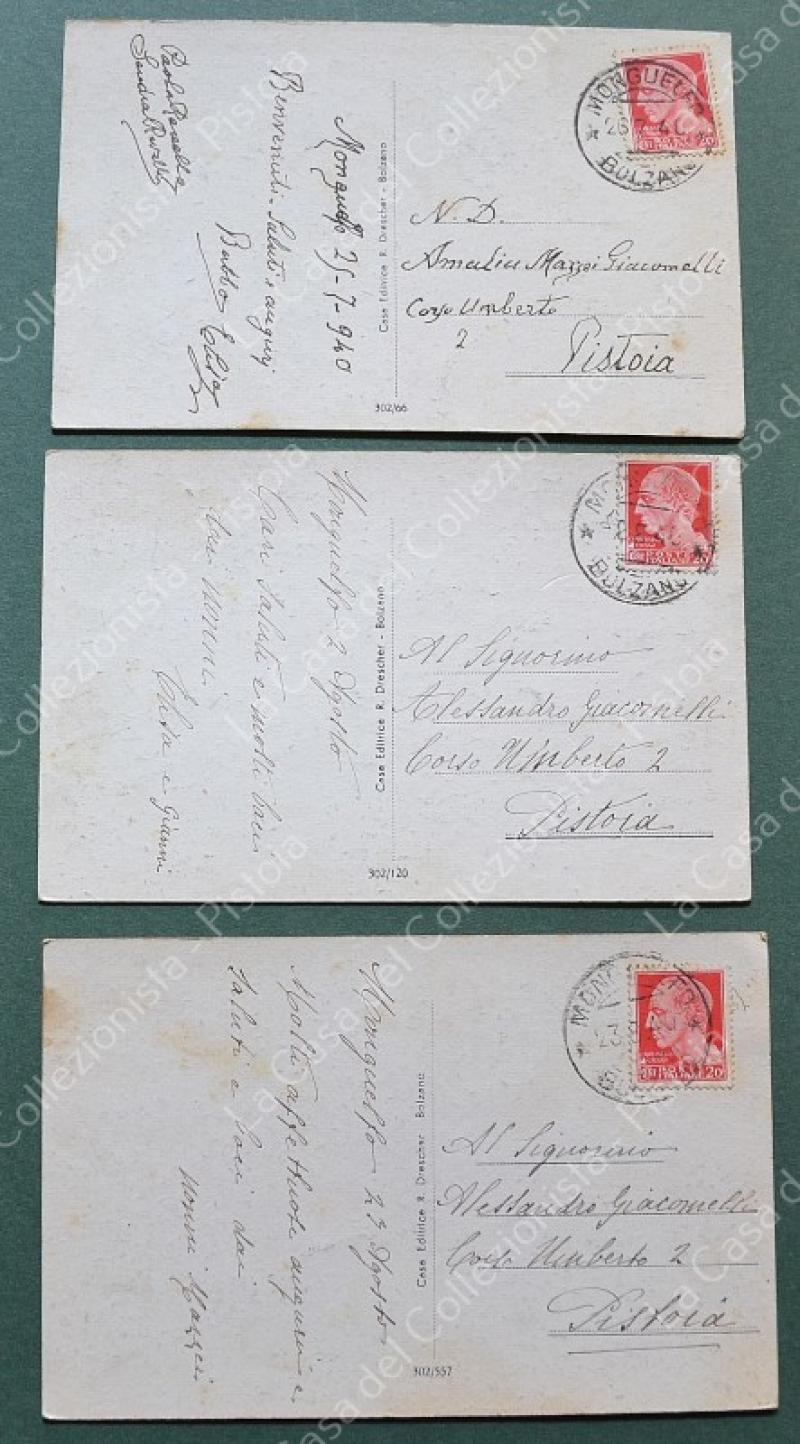 Monguelfo 25-7-940
Benvenuti - Saluti e auguri
Babbo Elisa
Paola
Casa Editrice R. Drescher - Bolzano
302/66
MONGUELFO
26 7 40
BOLZANO
N. D.
Amalia Mazzei Giacomelli
Corso Umberto
2
Pistoia
Monguelfo 2 Agosto
Cari saluti e molti baci
dai nonni
Elisa e Gianni
Casa Editrice R. Drescher - Bolzano
302/120
BOLZANO
POSTE ITALIANE
20
Al Signorino
Alessandro Giacomelli
Corso Umberto 2
Pistoia
Monguelfo 23 Agosto
Molti affettuosi auguri e
saluti e baci dai
nonni Mazzei
Casa Editrice R. Drescher - Bolzano
302/557
POSTE ITALIANE
20
Al Signorino
Alessandro Giacomelli
Corso Umberto 2
Pistoia
La Casa del Collezionista - Pistoia